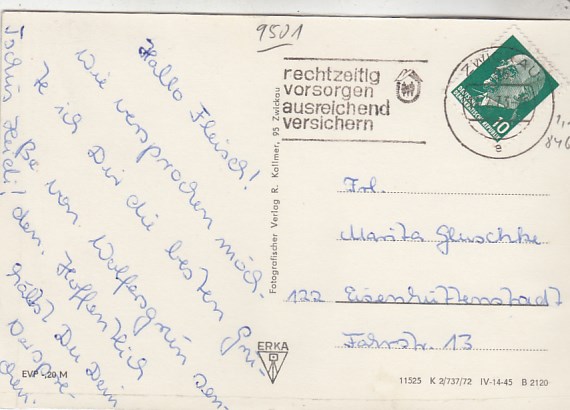 9501
Hallo Fleisch!
Wie versprochen möch-
te ich Dir die besten Grü-
ße von Wolfersgrün sen-
den. Hoffentlich
hältst Du Dein
Verspre-
chen.
Tschüs Heidi!
rechtzeitig
vorsorgen
ausreichend
versichern
ZWICKAU
10
Frl.
Marita Gluschke
122 Eisenhüttenstadt
Fährstr. 13
Fotografischer Verlag R. Kallmer, 95 Zwickau
ERKA
EVP -,20 M
11525 K 2/737/72 IV-14-45 B 2120